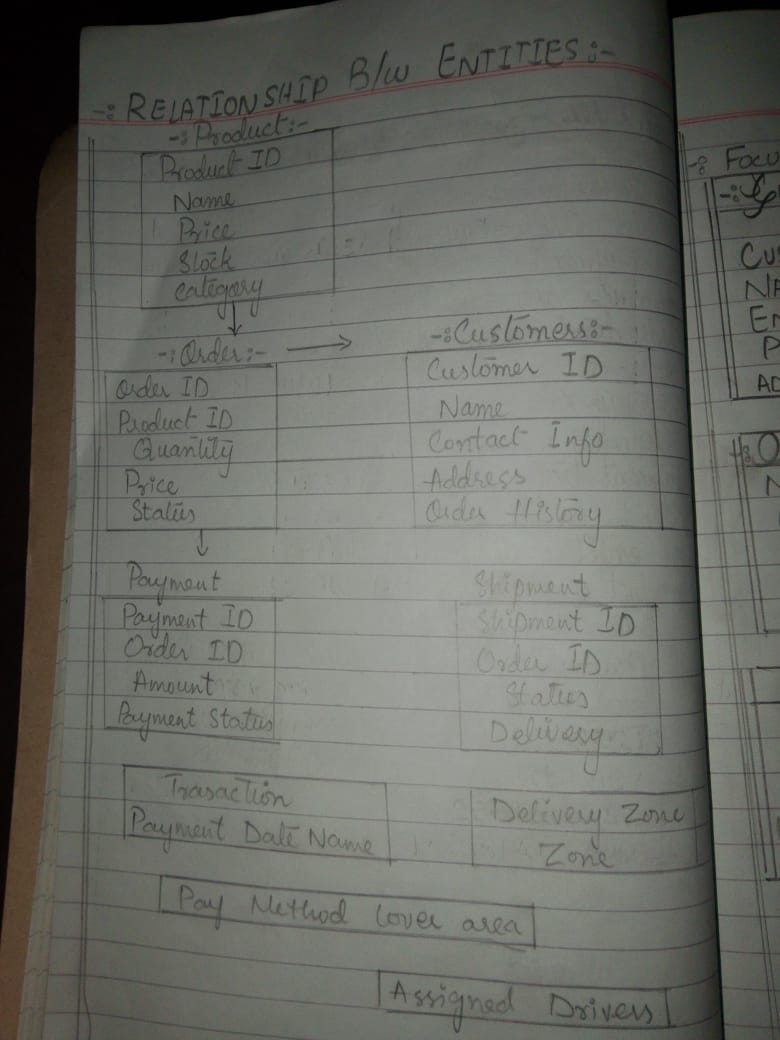 -: RELATIONSHIP B/w ENTITIES :-
-: Product :-
Product ID
Name
Price
Stock
Category
-: Order :-
Order ID
Product ID
Quantity
Price
Status
-: Customers :-
Customer ID
Name
Contact Info
Address
Order History
Payment
Payment ID
Order ID
Amount
Payment Status
Shipment
Shipment ID
Order ID
Status
Delivery
Trasaction
Payment Date Name
Delivery Zone
Zone
Pay Method Cover area
Assigned Drivers